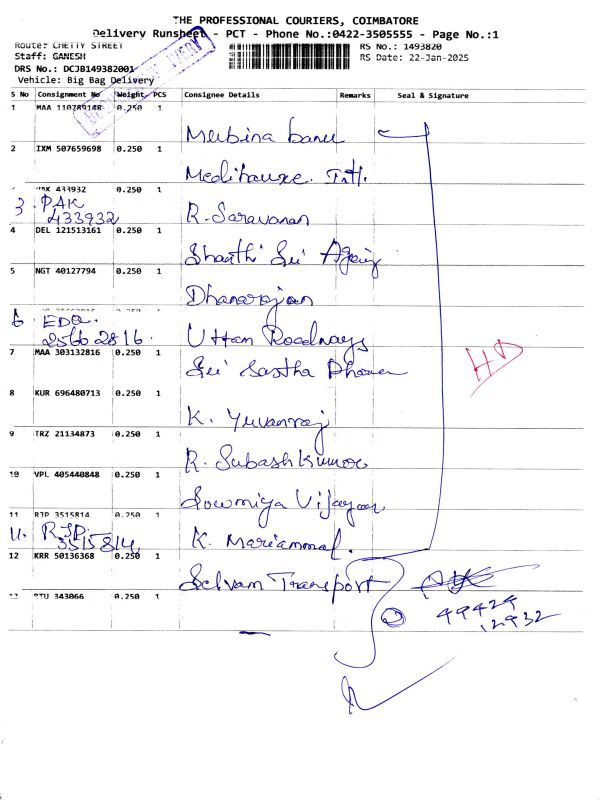 THE PROFESSIONAL COURIERS, COIMBATORE
Delivery Runsheet - PCT - Phone No.:0422-3505555 - Page No.:1
Route: CHETTY STREET
RS No.: 1493820
Staff: GANESH
RS Date: 22-Jan-2025
DRS No.: DCJB149382001
Vehicle: Big Bag Delivery
S No Consignment No Weight PCS Consignee Details Remarks Seal & Signature
1 MAA 110789148 0.250 1
Meebina banu
2 IXM 507659698 0.250 1
Medihauxe
PAK 433932 0.250 1
3. PAK
433932
R. Saravanan
4 DEL 121513161 0.250 1
Shanthi Sri
5 NGT 40127794 0.250 1
Dhanarajan
6. EDQ.
2566 2816.
Uttam Roadways
7 MAA 303132816 0.250 1
Sri Sastha
HD
8 KUR 696480713 0.250 1
K. Yuvanraj
9 TRZ 21134873 0.250 1
R. Subash Kumar
10 VPL 405440848 0.250 1
Sowmiya
11 RJP 3515814 0.250 1
11. RJP
3515814
K. Mariammal.
12 KRR 50136368 0.250 1
Selvam Transport
49429
12932
13 RTU 343066 0.250 1